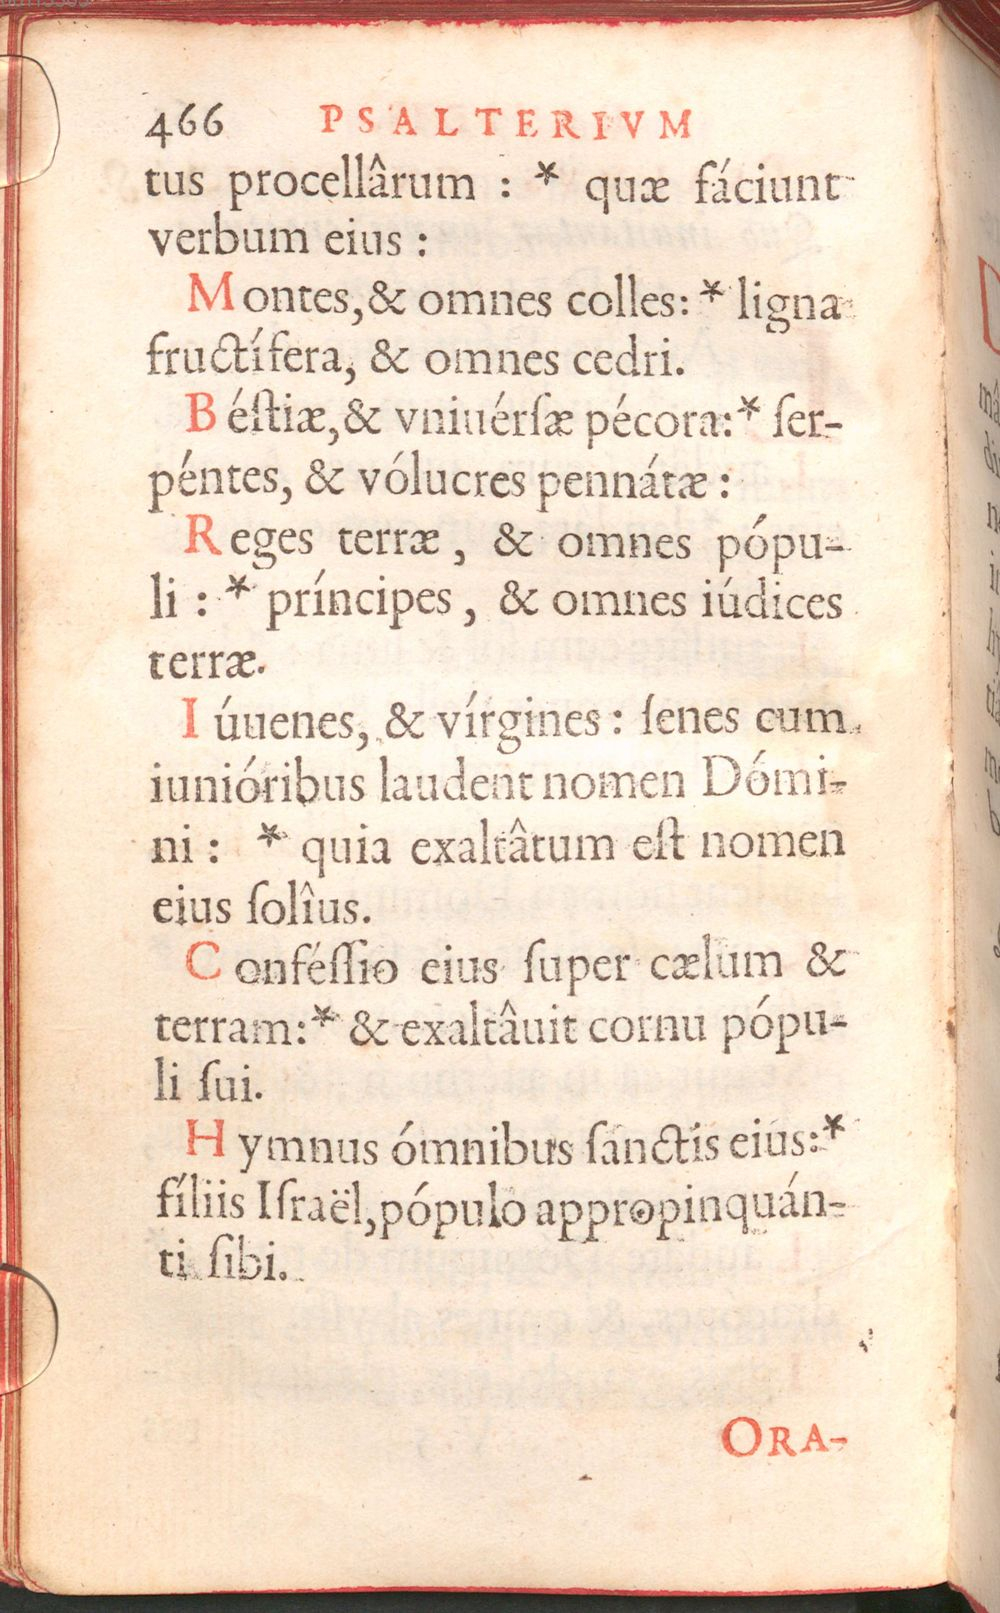 466 PSALTERIVM
tus procellârum : * quæ fáciunt
verbum eius :
Montes, & omnes colles: * ligna
fructífera, & omnes cedri.
Béſtiæ, & vniuérſæ pécora: * ſer-
péntes, & vólucres pennátæ :
Reges terræ, & omnes pópu-
li : * príncipes, & omnes iúdices
terræ.
Iúuenes, & vírgines : ſenes cum
iunióribus laudent nomen Dómi-
ni : * quia exaltâtum eſt nomen
eius ſolîus.
Conféſſio eius ſuper cælum &
terram: * & exaltâuit cornu pópu-
li ſui.
Hymnus ómnibus ſanctis eius: *
fíliis Iſraël, pópulo appropinquán-
ti ſibi.
ORA-